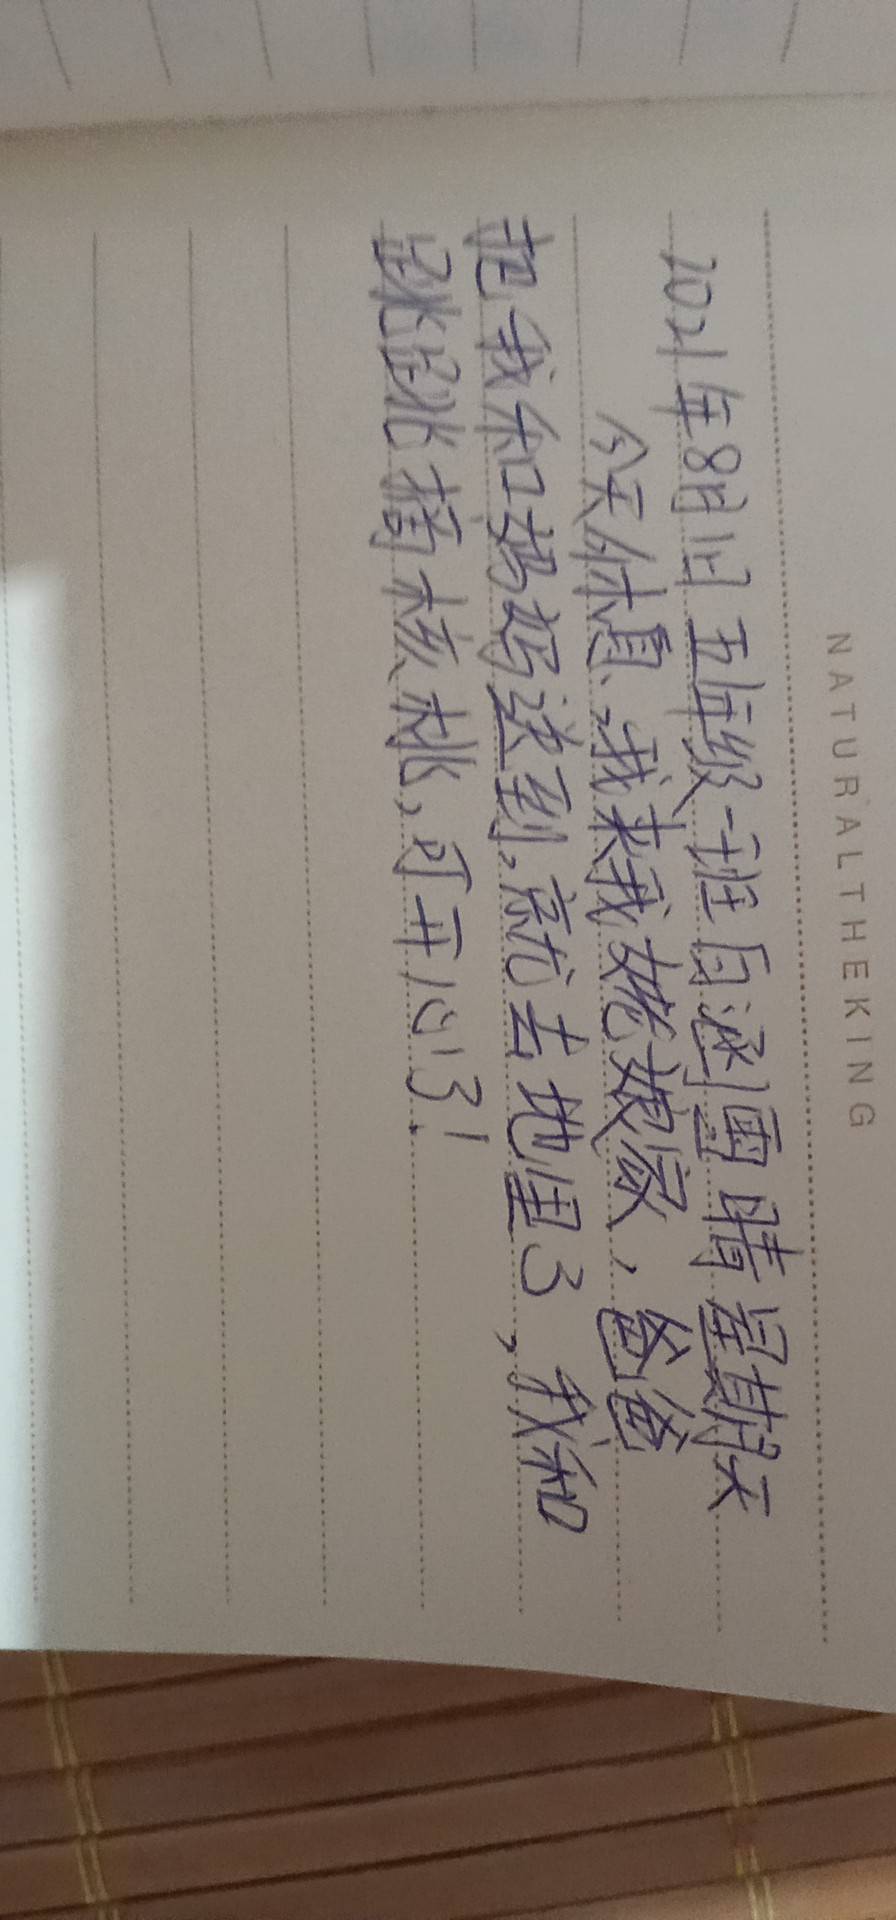 NATURALTHEKING
2021年8月1日 五年级一班 闫涵 晴 星期天
今天休息、我来我姥娘家，爸爸
把我和妈妈送到，就去地里了，我和
跳跳摘核桃，可开心了！